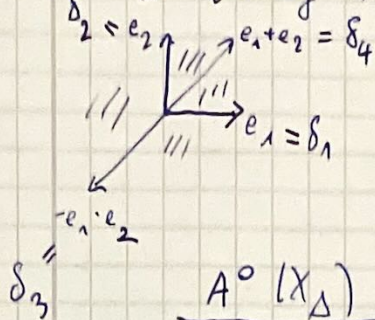 δ₂ = e₂
e₁+e₂ = δ₄
e₁ = δ₁
-e₁-e₂
=
δ₃
A⁰ (X_Δ)